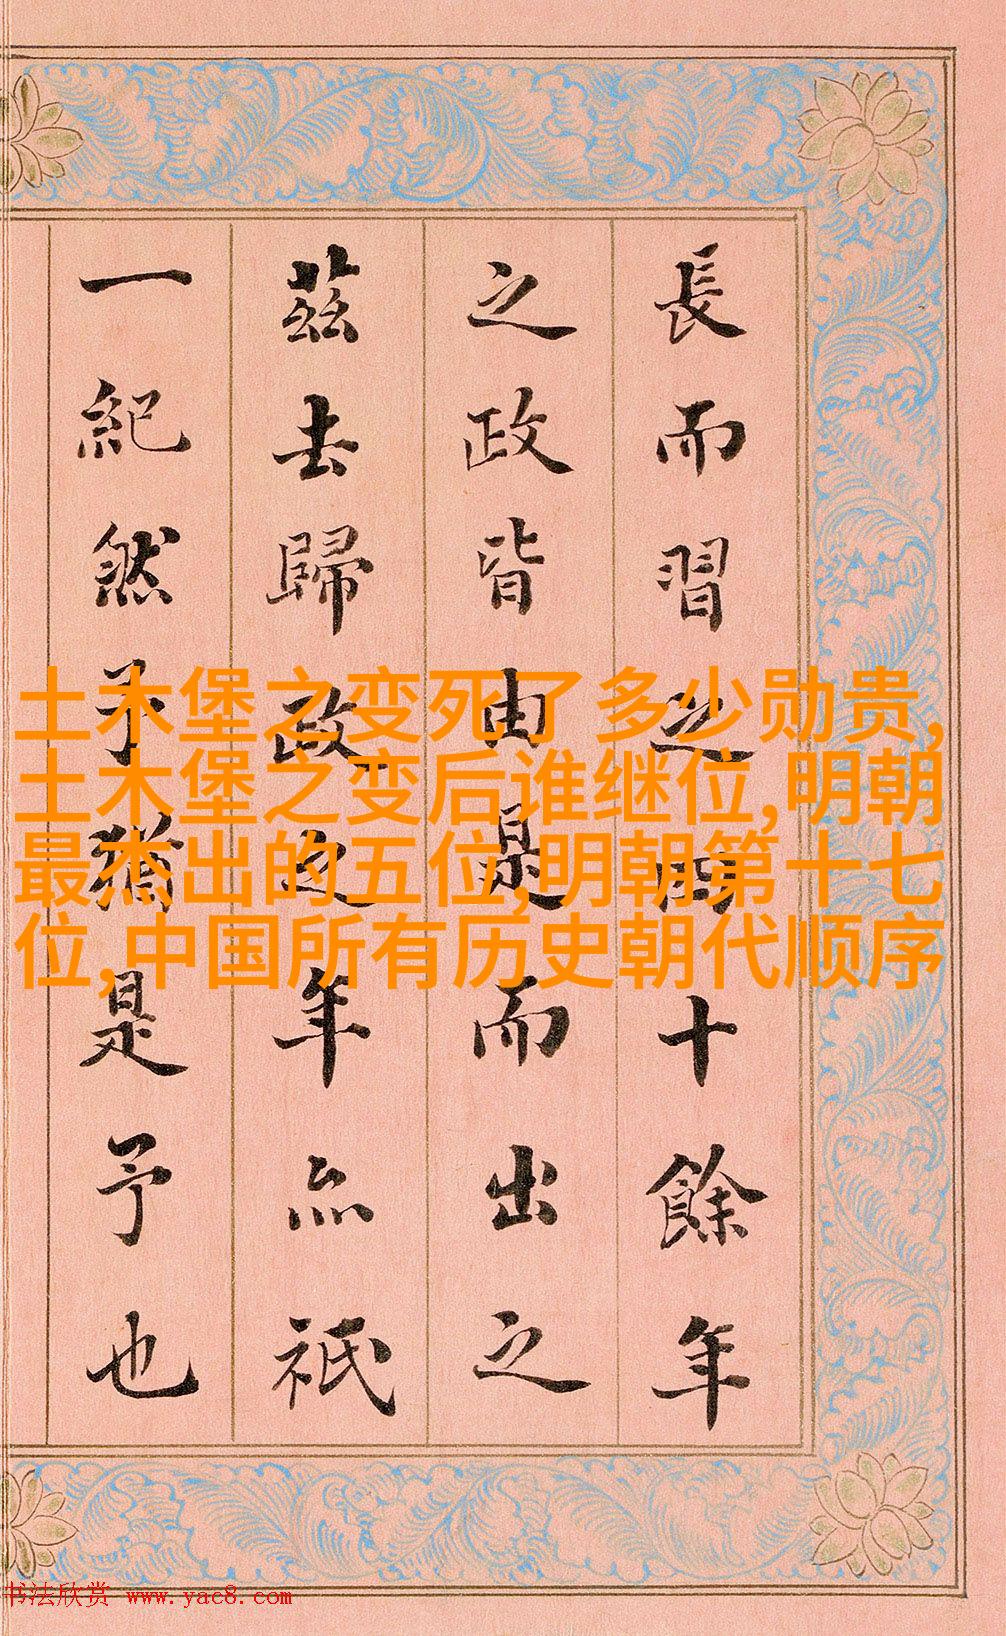 長而習之四十餘年
之政皆由是而出之
茲去歸政之年亦祇
一紀然予猶是予也
土木堡之变死了多少勋贵,
土木堡之变后谁继位,明朝
最杰出的五位,明朝第十七
位,中国所有历史朝代顺序
书法欣赏 www.yac8.com